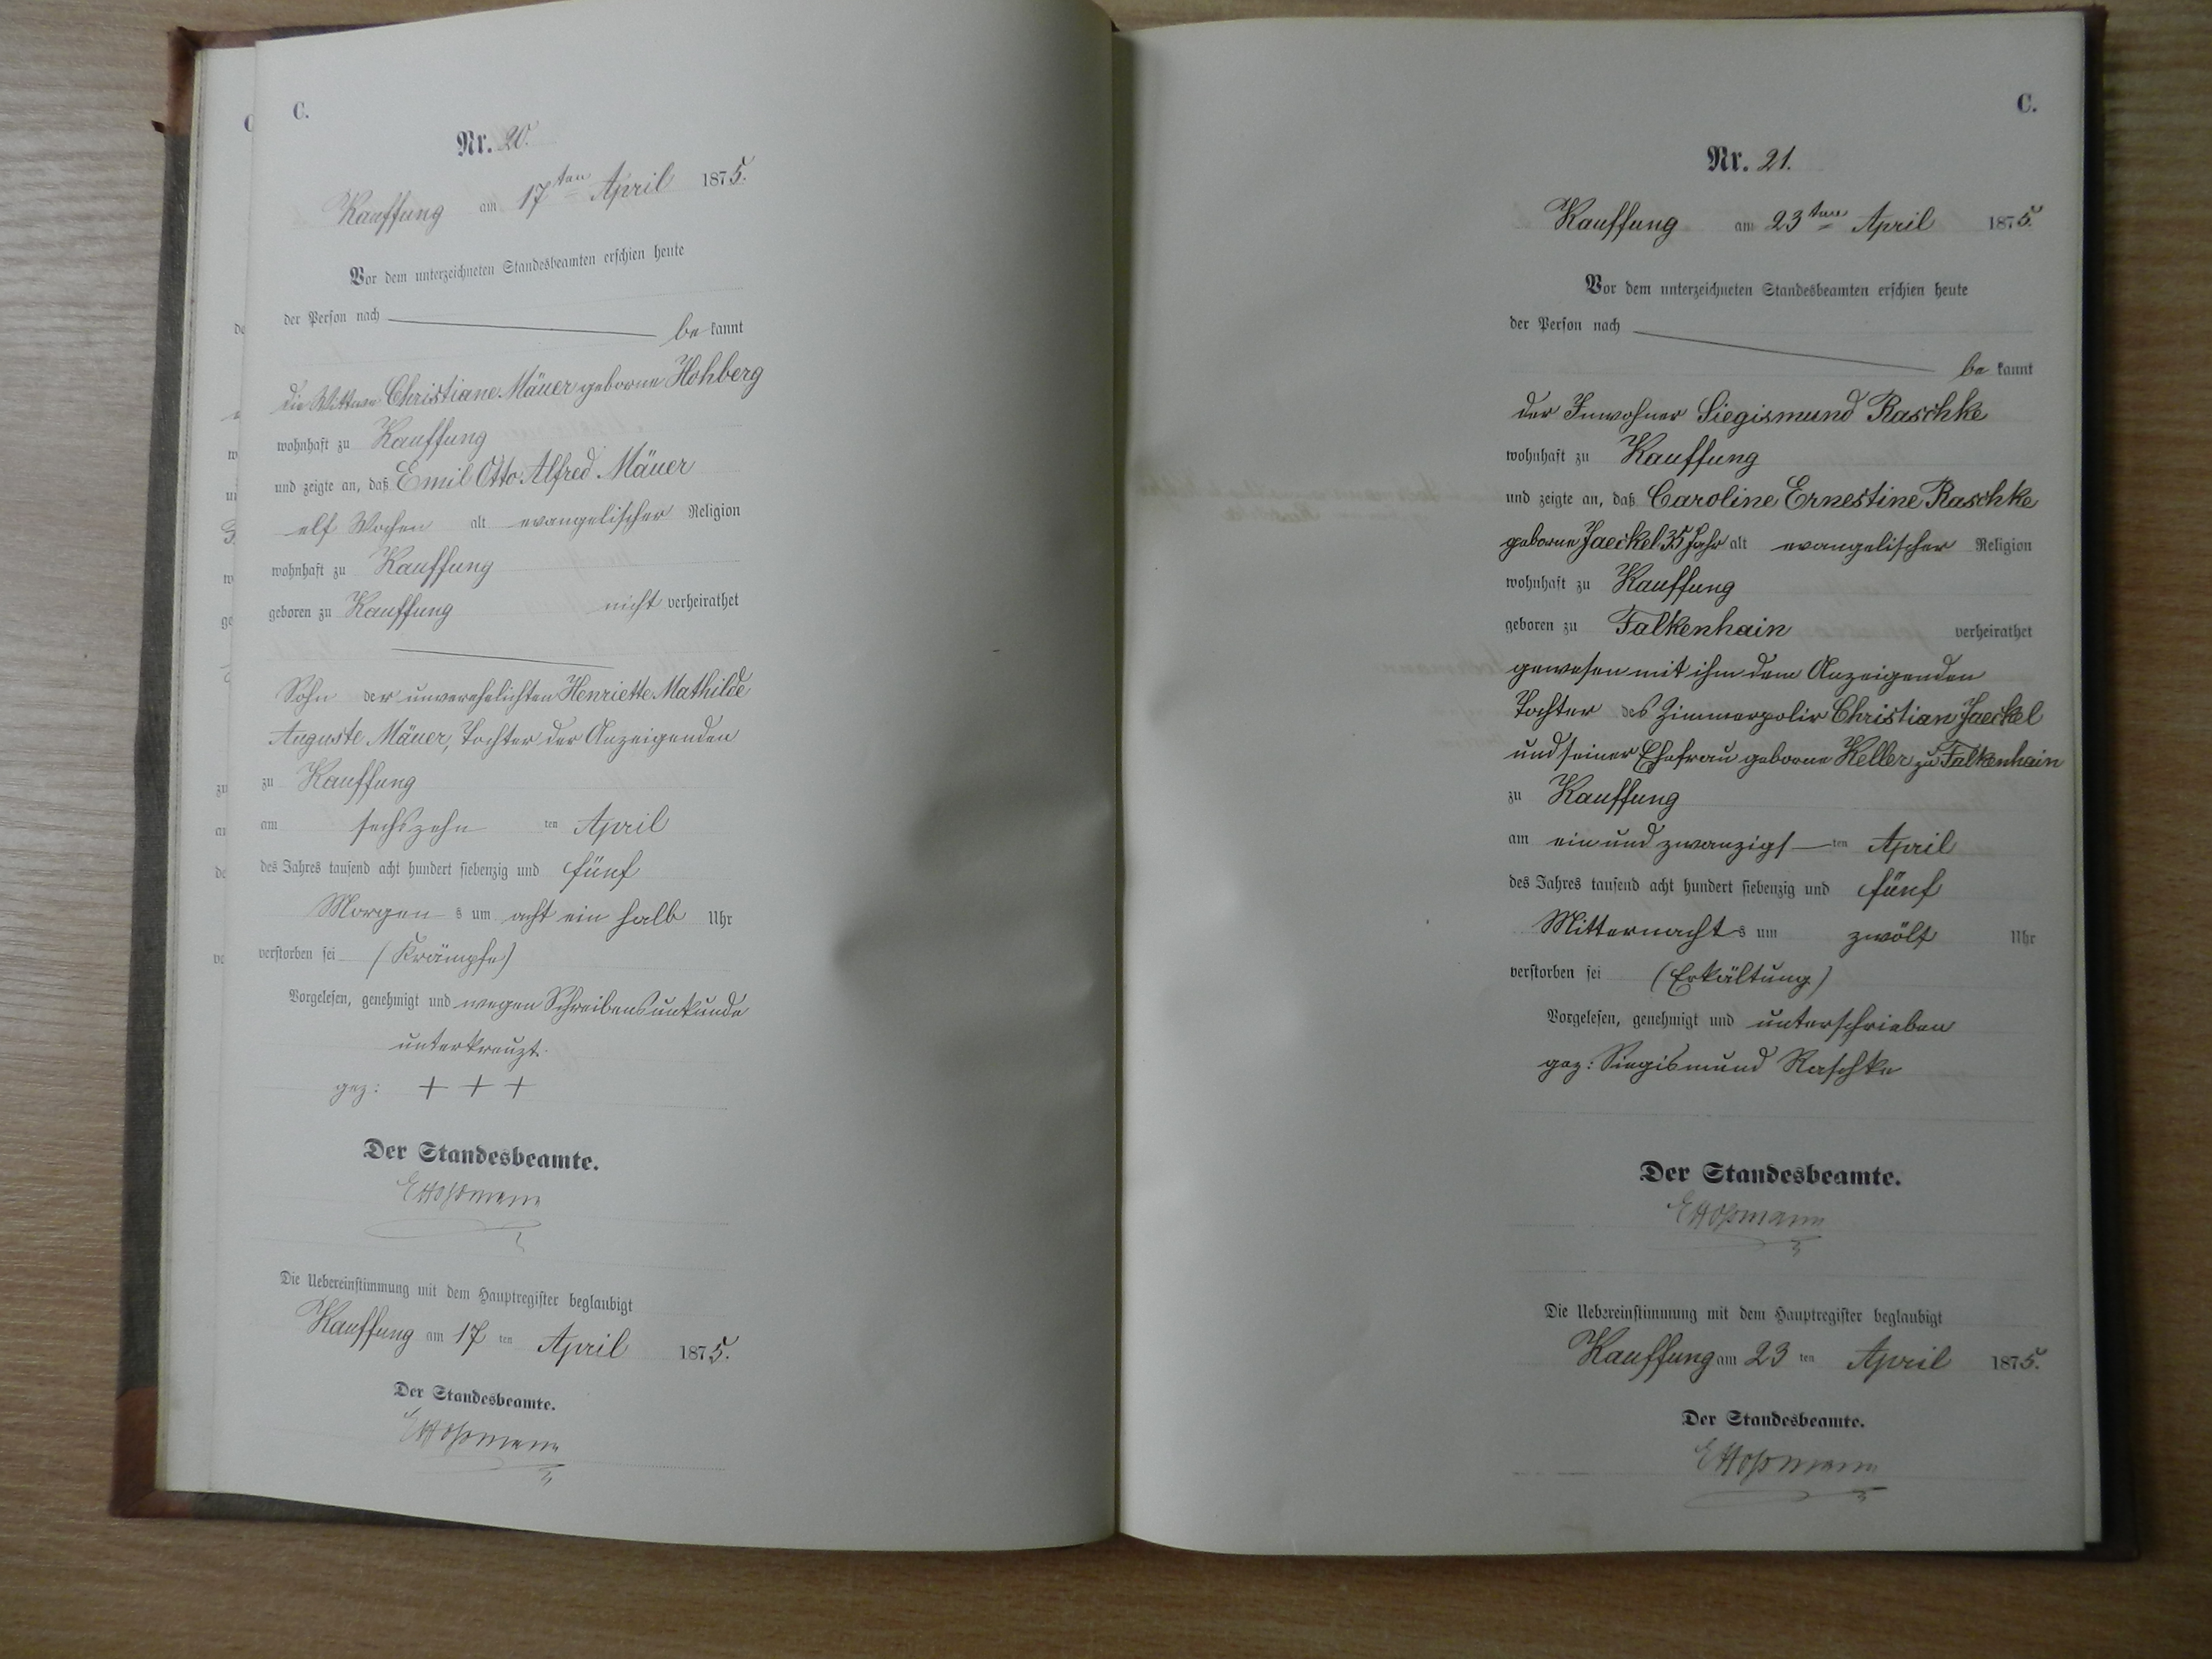 C.
Nr. 20.
Kauffung am 17ten April 1875.
Vor dem unterzeichneten Standesbeamten erschien heute
der Person nach be kannt
die Wittwe Christiane Mäuer geborne Hohberg
wohnhaft zu Kauffung
und zeigte an, daß Emil Otto Alfred Mäuer
elf Wochen alt evangelischer Religion
wohnhaft zu Kauffung
geboren zu Kauffung nicht verheirathet
Sohn der unverehelichten Henriette Mathilde
Auguste Mäuer, Tochter der Anzeigenden
zu Kauffung
am sechszehn ten April
des Jahres tausend acht hundert siebenzig und fünf
Morgen s um acht ein halb Uhr
verstorben sei (Krämpfe)
Vorgelesen, genehmigt und wegen Schreibensunkunde
unterkreuzt.
gez: + + +
Der Standesbeamte.
Die Uebereinstimmung mit dem Hauptregister beglaubigt
Kauffung am 17 ten April 1875.
Der Standesbeamte.
C.
Nr. 21.
Kauffung am 23ten April 1875.
Vor dem unterzeichneten Standesbeamten erschien heute
der Person nach
be kannt
der Inwohner Siegismund Raschke
wohnhaft zu Kauffung
und zeigte an, daß Caroline Ernestine Raschke
geborne Jaeckel 35 Jahr alt evangelischer Religion
wohnhaft zu Kauffung
geboren zu Falkenhain verheirathet
gewesen mit ihm dem Anzeigenden
Tochter des Zimmerpolir Christian Jaeckel
und seiner Ehefrau geborne Keller zu Falkenhain
zu Kauffung
am ein und zwanzigs ten April
des Jahres tausend acht hundert siebenzig und fünf
Mitternacht s um zwölf Uhr
verstorben sei (Erkältung)
Vorgelesen, genehmigt und unterschrieben
gez: Siegismund Raschke
Der Standesbeamte.
Die Uebereinstimmung mit dem Hauptregister beglaubigt
Kauffung am 23 ten April 1875.
Der Standesbeamte.